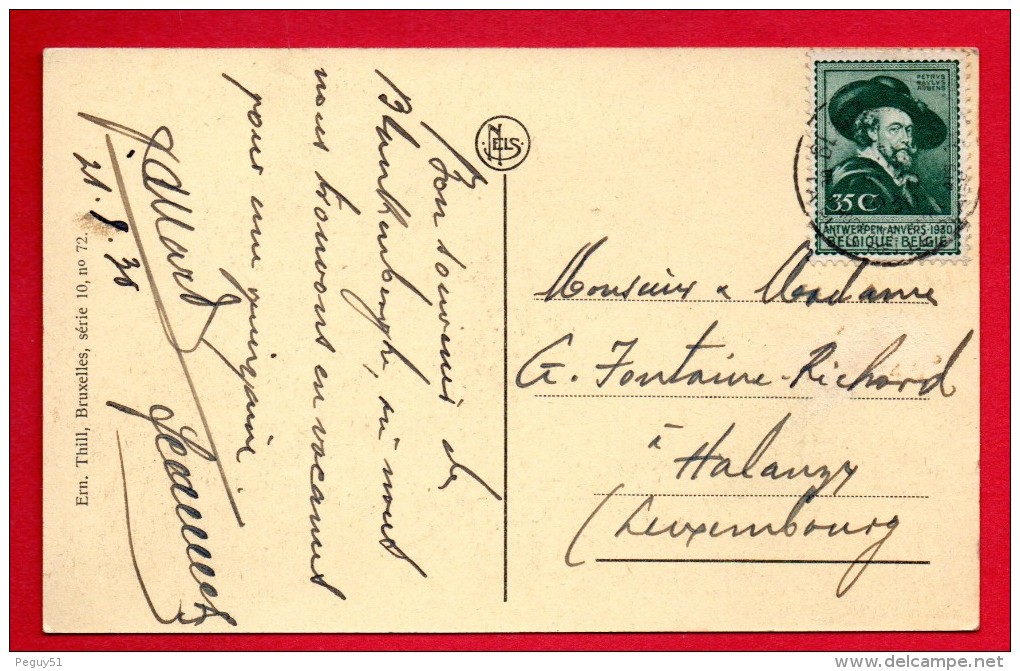 Bon souvenir de
Blankenberghe, où nous
nous trouvons en vacances
pour une quinzaine
21.8.30
Ern. Thill, Bruxelles, série 10, nº 72.
NELS
PETRVS
PAVLVS
RVBENS
35 C
ANTWERPEN·ANVERS·1930
BELGIQUE·BELGIË
Monsieur & Madame
G. Fontaine-Richard
à
Halanzy
(Luxembourg
Peguy51
delcampe.net